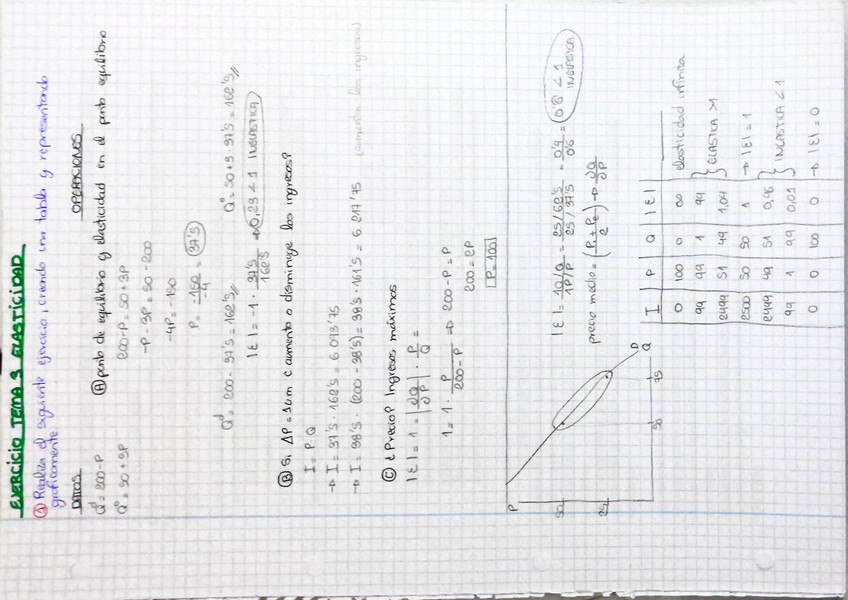 EJERCICIO TEMA 3 ELASTICIDAD
① Realiza el siguiente ejercicio, creando una tabla y representando
graficamente
DATOS
OPERACIONES
Qd = 200-P
Qo = 50 + 3P
Ⓐ punto de equilibrio y elasticidad en el punto equilibrio
200-P = 50 + 3P
-P - 3P = 50 - 200
-4P = -150
P = -150/-4 = 37'5
Qd = 200 - 37'5 = 162'5 //
Qo = 50 + 3 · 37'5 = 162'5 //
|E| = -1 · 37'5/162'5 → 0,23 < 1 INELÁSTICA
Ⓑ Si ΔP = 1um ¿ aumenta o disminuye los ingresos?
I = P · Q
→ I = 37'5 · 162'5 = 6 093'75
→ I = 38'5 · (200 - 38'5) = 38'5 · 161'5 = 6.217'75 (aumenta los ingresos)
Ⓒ ¿Precio? Ingresos máximos
|E| = 1 = |∂Q/∂P| · P/Q =
1 = 1 · P/200-P => 200 - P = P
200 = 2P
P = 100
|E| = ΔQ/Q / ΔP/P = 25/62'5 / 25/37'5 = 0'4/0'6 = 0'6 < 1
INELÁSTICA
precio medio = (P1 + P2 / 2) → ∂Q/∂P
P
50
25
50
75
D
Q
I P Q |E|
0 100 0 ∞ elasticidad infinita
99 99 1 99 } ELASTICA >1
2499 51 49 1,04
2500 50 50 1 → |E| = 1
2499 49 51 0,96 } INELASTICA < 1
99 1 99 0,01
0 0 100 0 → |E| = 0